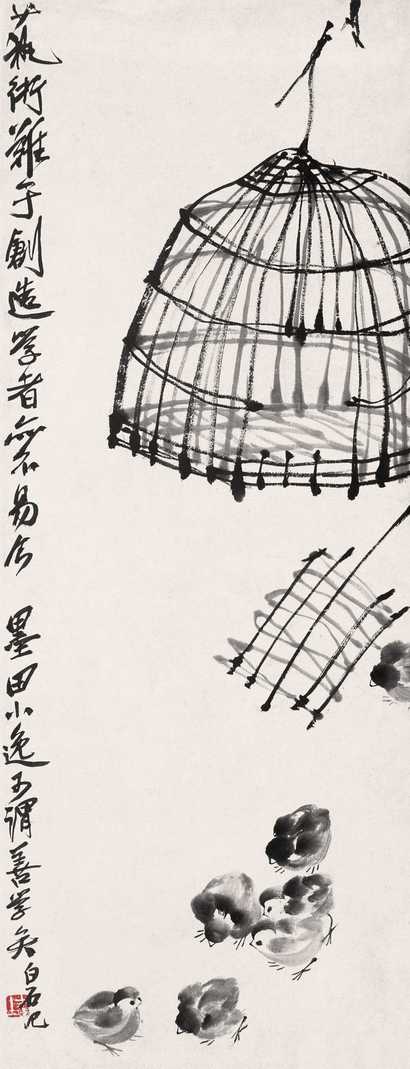 藝術難于創造學者亦不易今墨田小逸可謂善學矣白石凡